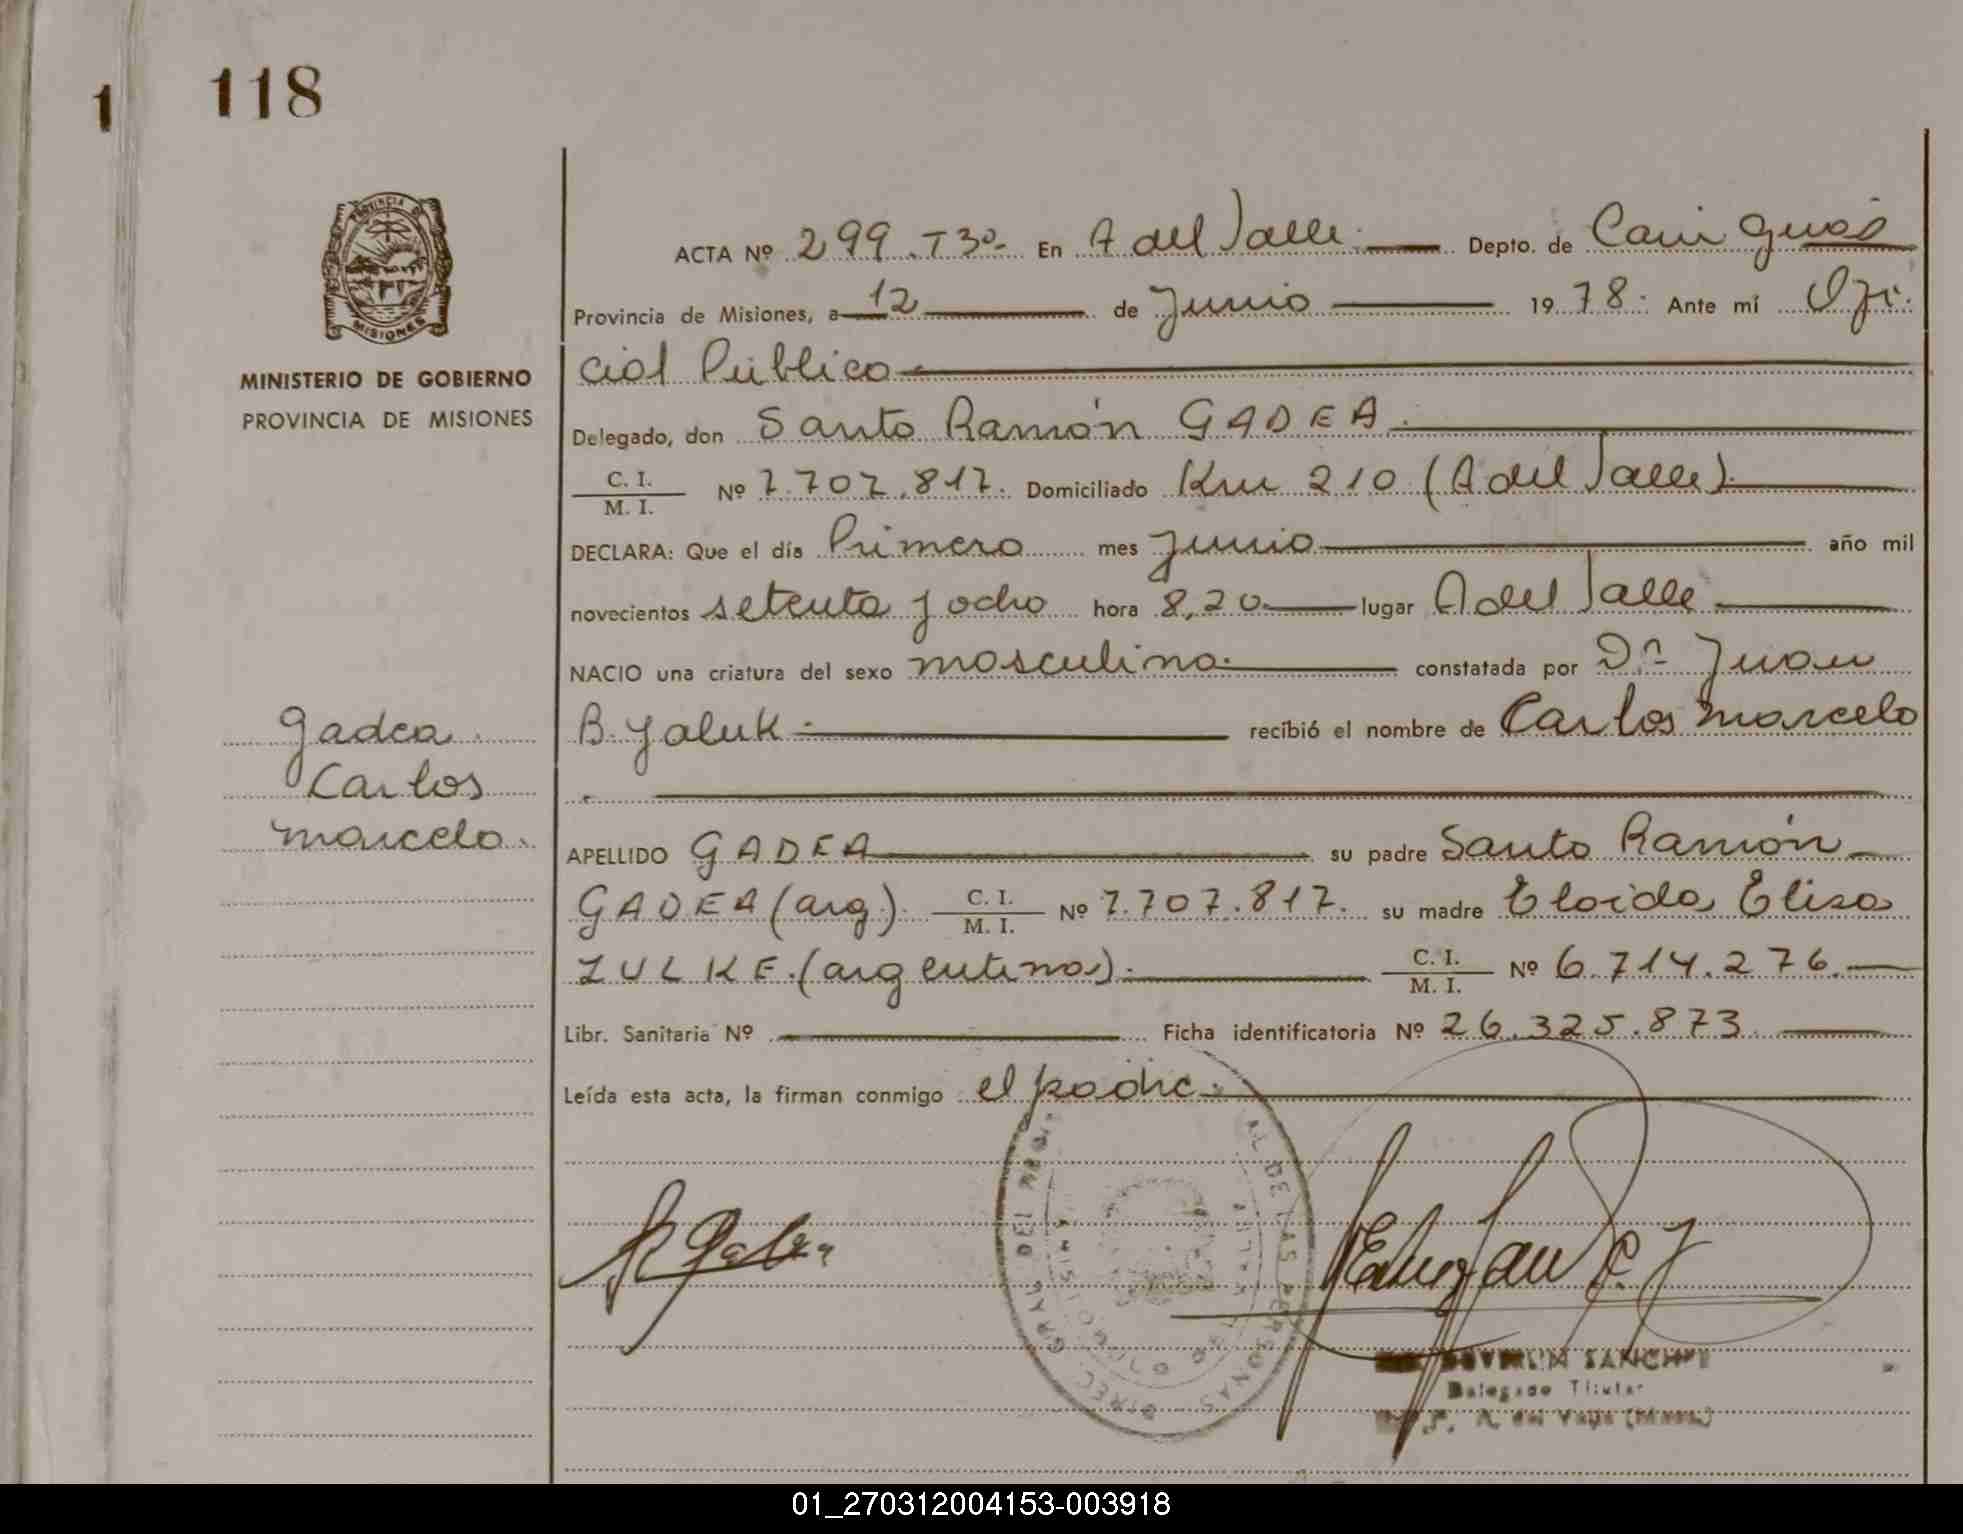 1 118
PROVINCIA DE
MISIONES
MINISTERIO DE GOBIERNO
PROVINCIA DE MISIONES
ACTA Nº 299. T3º- En A del Valle. Depto. de Cainguás
Provincia de Misiones, a 12 de Junio 1978. Ante mí Ofi-
cial Público
Delegado, don Santo Ramón GADEA.
C. I.
M. I. Nº 7.707.817. Domiciliado Km 210 (A del Valle).
DECLARA: Que el día Primero mes Junio año mil
novecientos setenta y ocho hora 8,20 lugar A del Valle
NACIO una criatura del sexo masculino. constatada por Dn Juan
B. Yaluk. recibió el nombre de Carlos Marcelo
Gadea.
Carlos
Marcelo.
APELLIDO GADEA su padre Santo Ramón
GADEA (arg). C. I.
M. I. Nº 7.707.817. su madre Eloida Elisa
ZULKE. (argentinos). C. I.
M. I. Nº 6.714.276.
Libr. Sanitaria Nº Ficha identificatoria Nº 26.325.873
Leída esta acta, la firman conmigo el padre.
AL DE LAS PERSONAS
DIREC. GRAL.
SANCHEZ
Delegado Titular
A. del Valle (Mnes.)
01_270312004153-003918